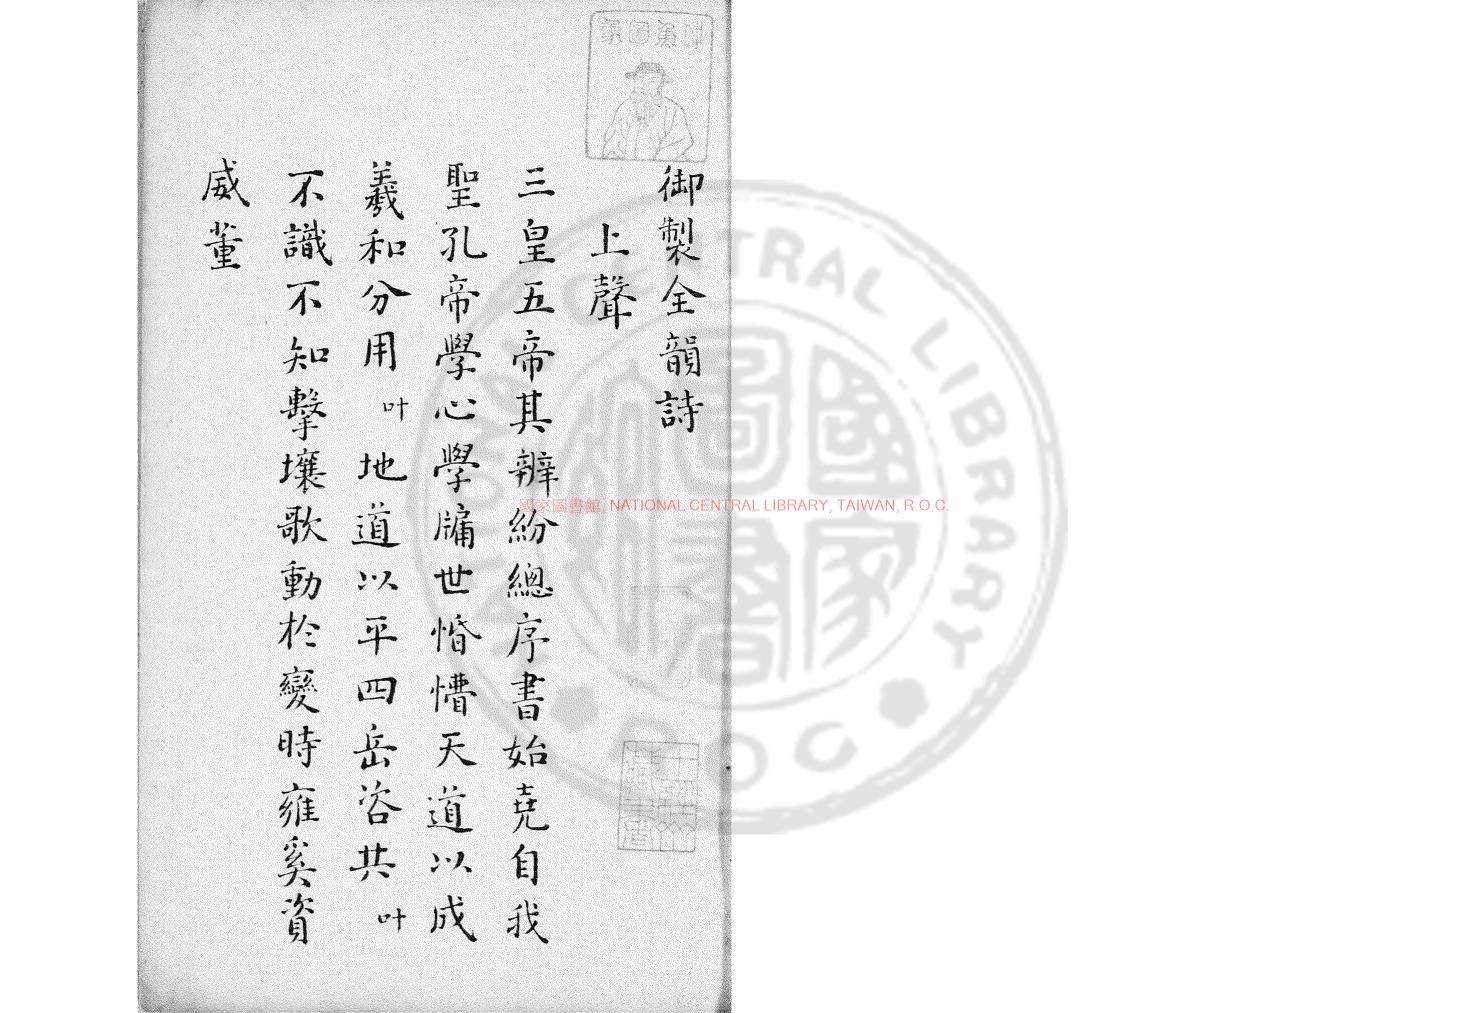 御製全韻詩
上聲
三皇五帝其辨紛總序書始堯自我
聖孔帝學心學牖世惛懵天道以成
羲和分用叶地道以平四岳咨共叶
不識不知擊壤歌動於變時雍奚資
威董
仲魚圖象
國家圖書館, NATIONAL CENTRAL LIBRARY, TAIWAN, R.O.C.
NATIONAL CENTRAL LIBRARY
ROC
國家圖書